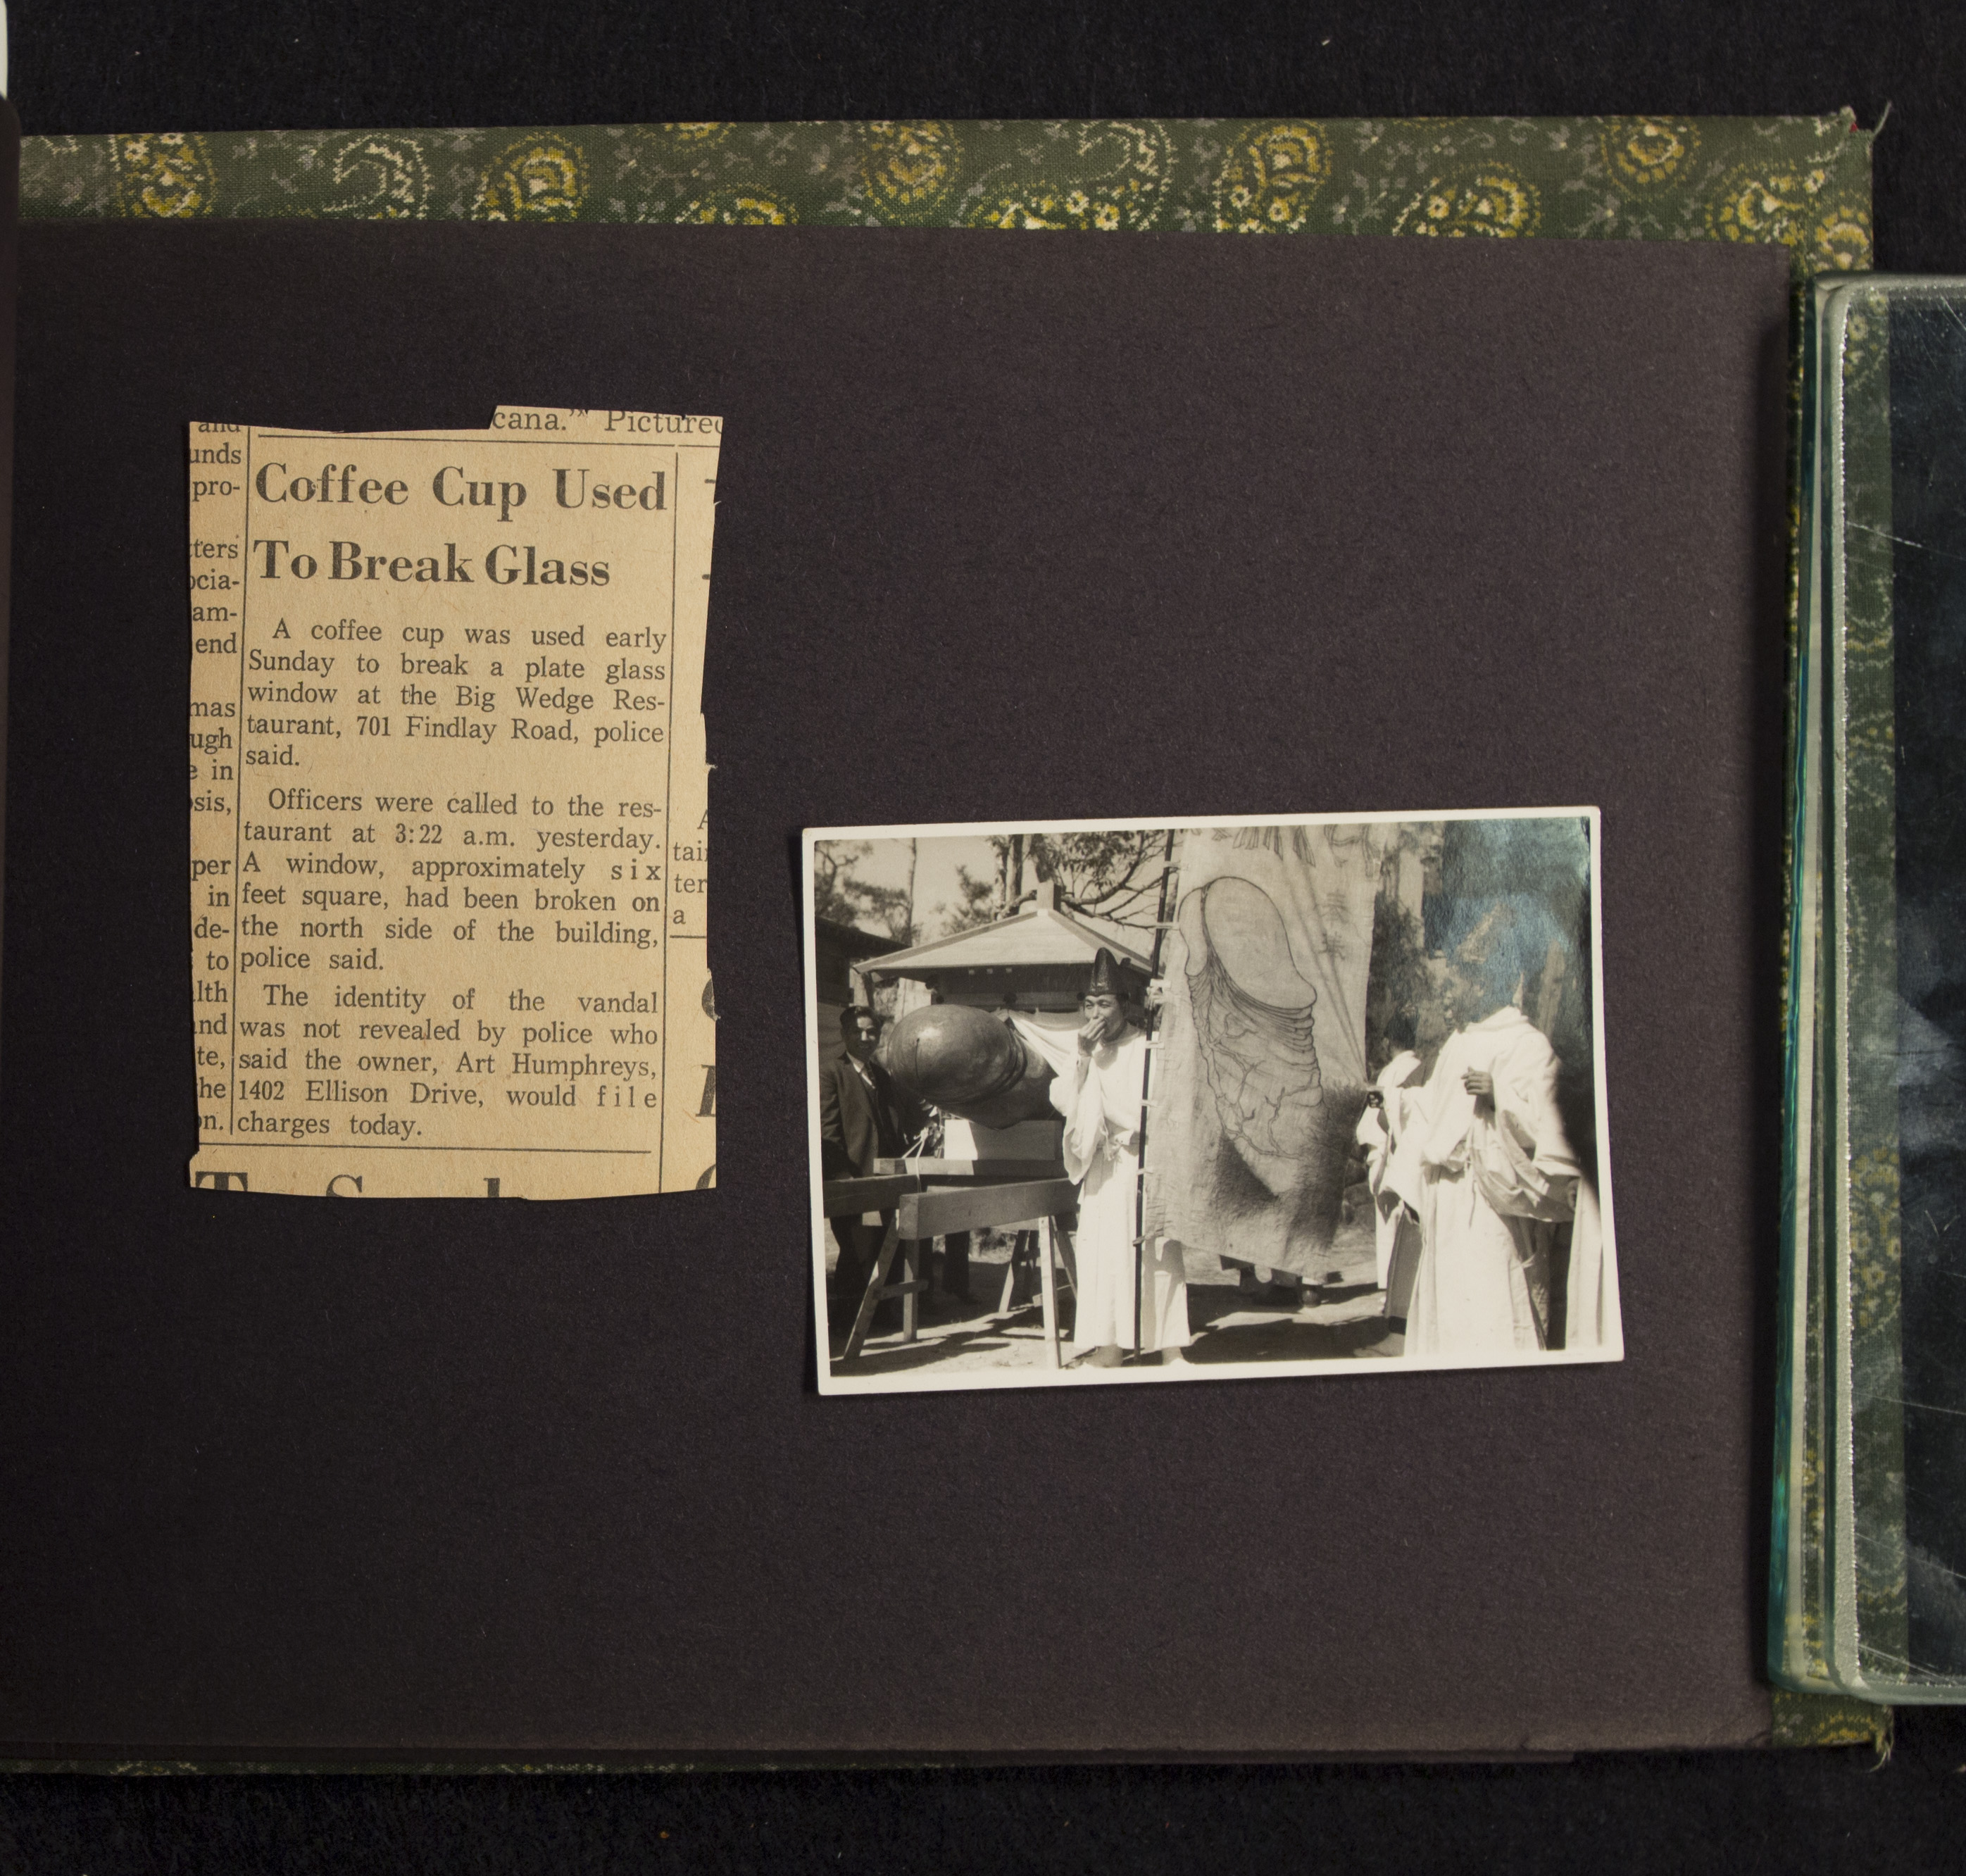 cana.'" Pictured
and
unds
pro-
tters
ocia-
am-
end
mas
ugh
e in
sis,
per
in
de-
to
lth
nd
te,
he
on.
Coffee Cup Used
To Break Glass
A coffee cup was used early
Sunday to break a plate glass
window at the Big Wedge Res-
taurant, 701 Findlay Road, police
said.
Officers were called to the res-
taurant at 3:22 a.m. yesterday.
A window, approximately six
feet square, had been broken on
the north side of the building,
police said.
The identity of the vandal
was not revealed by police who
said the owner, Art Humphreys,
1402 Ellison Drive, would file
charges today.
tai
ter
a